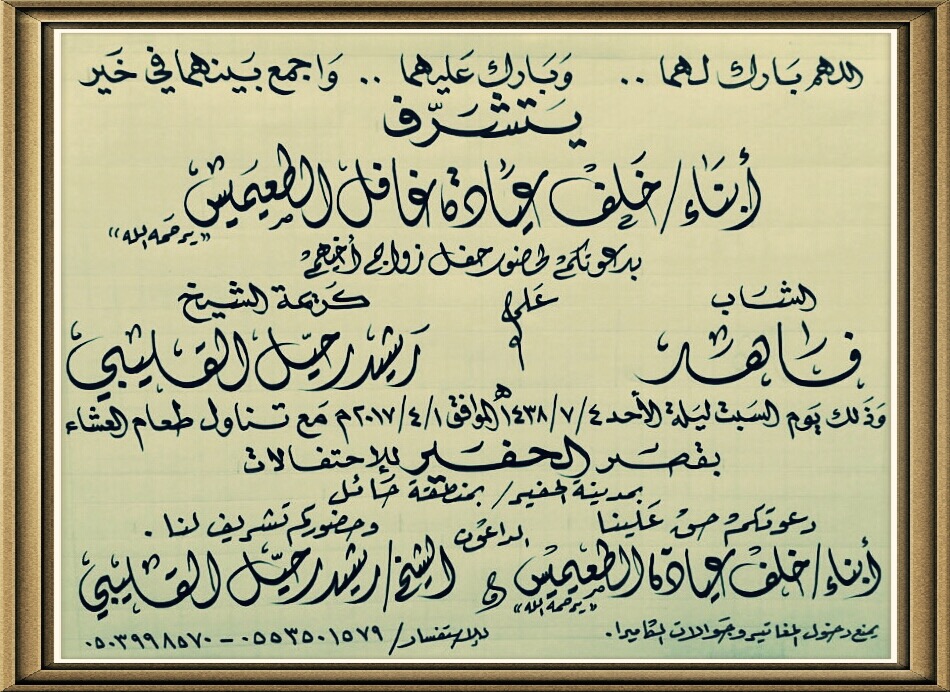 اللهم بَارك لهما .. وَبَارك عَليهما .. وَاجمع بَينهما في خَير
يَتشَرّف
أبنَاء/ خَلف عيَادة غافل الطعيميش
"يرحمه الله"
بدعوتكم لحضور حفل زواج أخيهم
الشَاب على كَريمة الشيخ
فَاهد رَشيد رحيّل القليبي
وَذَلك يَوم السَبت ليلة الأحد ١٤٣٨/٧/٤هـ الموافق ٢٠١٧/٤/١م مَع تناول طعام العشاء
بقصر الحفير للإحتفالات
بمدينة الحفير/ بمنطقة حَائل
دعوتكم حق عَلينا وحضوركم تشريف لنا .
الداعون
أبناء/ خلف عيادة الطعيميش و الشيخ/ رشيد رحيّل القليبي
"يرحمه الله"
يمنع دخول المفاتير وجوالات الكاميرا.
للإستفسار/ ٠٥٥٣٥٠١٥٧٩ - ٠٥٠٣٩٩٨٥٧٠